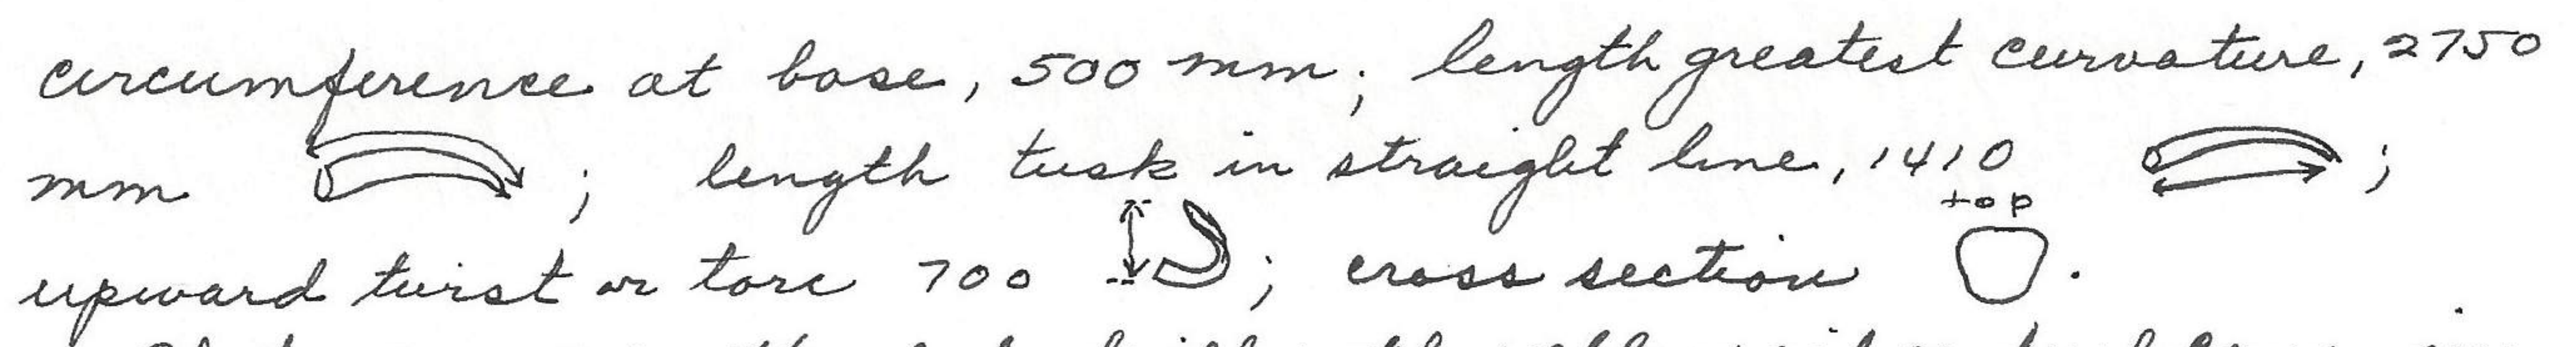 circumference at base, 500 mm; length greatest curvature, 2750
mm ; length tusk in straight line, 1410 ;
top
upward twist or torc 700 ; cross section .